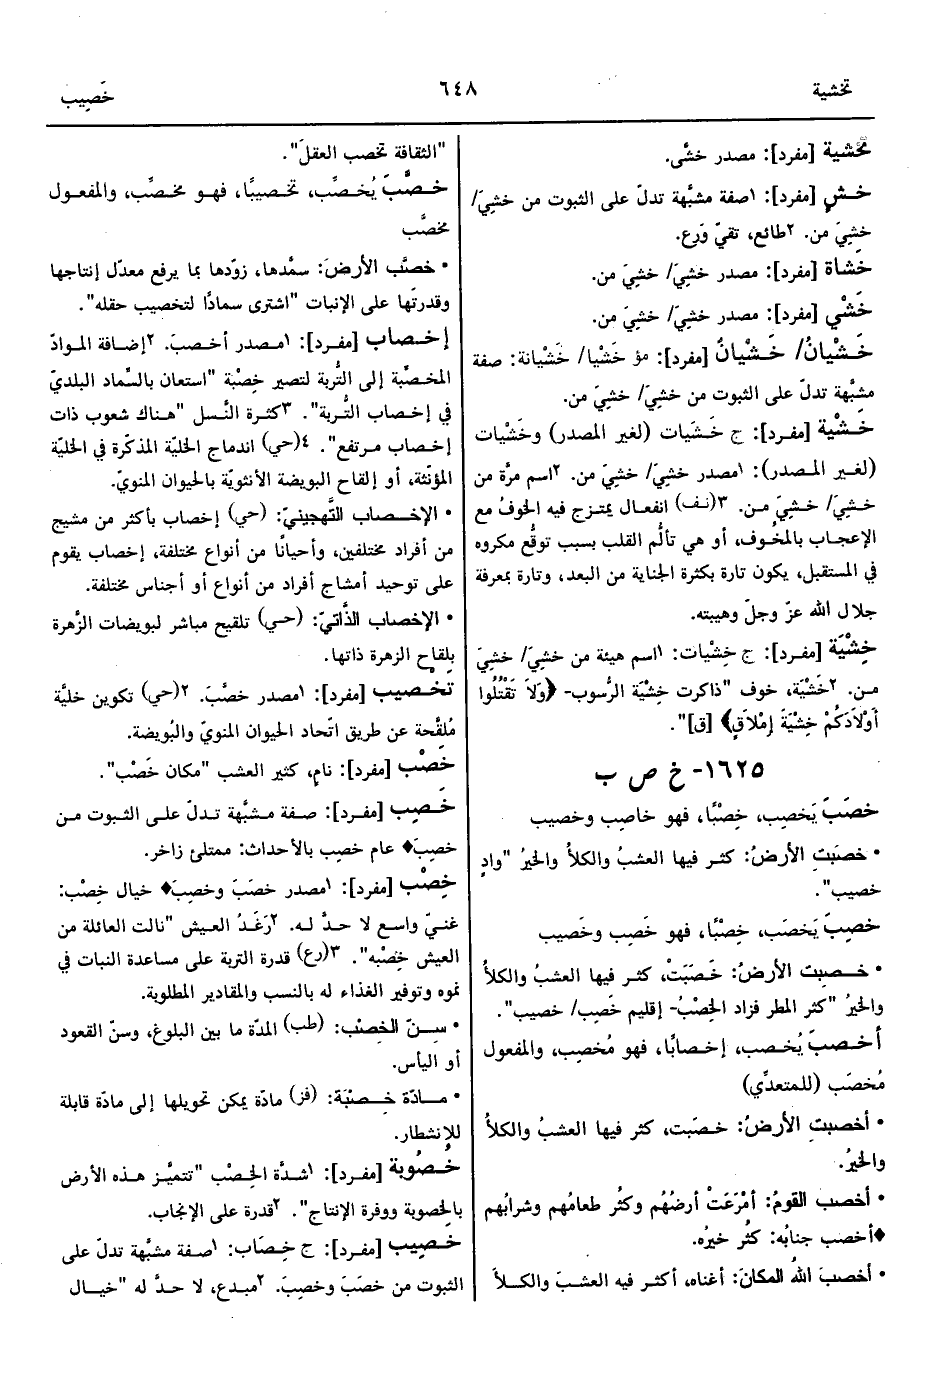 تخشية
٦٤٨
خَصِيب
تخشية [مفرد]: مصدر خشَّى.
خَشٍ [مفرد]: ١صفة مشبَّهة تدلّ على الثبوت من خشِيَ/
خشِيَ من. ٢طائع، تقيّ وَرِع.
خَشاة [مفرد]: مصدر خشِيَ/ خشِيَ من.
خَشْي [مفرد]: مصدر خشِيَ/ خشِيَ من.
خَشْيانُ/ خَشْيانٌ [مفرد]: مؤ خَشْيا/ خَشْيانة: صفة
مشبَّهة تدلّ على الثبوت من خشِيَ/ خشِيَ من.
خَشْية [مفرد]: ج خَشَيات (لغير المصدر) وخَشْيات
(لغير المصدر): ١مصدر خشِيَ/ خشِيَ من. ٢اسم مرَّة من
خشِيَ/ خشِيَ من. ٣(نف) انفعال يمتزج فيه الخوفُ مع
الإعجاب بالمخوف، أو هي تألُّم القلب بسبب توقُّع مكروه
في المستقبل، يكون تارة بكثرة الجناية من البعد، وتارة بمعرفة
جلال الله عزّ وجلّ وهيبته.
خِشْيَة [مفرد]: ج خِشْيات: ١اسم هيئة من خشِيَ/ خشِيَ
من. ٢خَشْيَة، خوف "ذاكرت خِشْيَةَ الرُّسوب- ﴿وَلاَ تَقْتُلُوا
أَوْلاَدَكُمْ خِشْيَةَ إِمْلاَقٍ﴾ [ق]".
١٦٢٥- خ ص ب
خصَبَ يَخصِب، خِصْبًا، فهو خاصِب وخصيب
• خصَبَتِ الأرضُ: كثر فيها العشبُ والكلأُ والخيرُ "وادٍ
خصيب".
خصِبَ يَخصَب، خِصْبًا، فهو خَصِب وخَصيب
• خصِبت الأرضُ: خَصَبَتْ، كثر فيها العشبُ والكلأُ
والخيرُ "كثر المطر فزاد الخِصْبُ- إقليم خَصِب/ خصيب".
أخصبَ يُخصب، إخصابًا، فهو مُخصِب، والمفعول
مُخصَب (للمتعدِّي)
• أخصبتِ الأرضُ: خصَبت، كثر فيها العشبُ والكلأُ
والخيرُ.
• أخصب القومُ: أمْرَعَتْ أرضُهُم وكثُر طعامُهم وشرابُهم
♦أخصب جنابُه: كثُر خيرُه.
• أخصبَ اللهُ المكانَ: أغناه، أكثر فيه العشبَ والكلأَ
"الثقافة تخصب العقلَ".
خصَّبَ يُخصِّب، تخصيبًا، فهو مخصِّب، والمفعول
مخصَّب
• خصَّب الأرضَ: سمَّدها، زوَّدها بما يرفع معدّل إنتاجها
وقدرتَها على الإنبات "اشترى سمادًا لتخصيب حقله".
إخصاب [مفرد]: ١مصدر أخصبَ. ٢إضافة الموادّ
المخصِّبة إلى التُّربة لتصير خِصْبة "استعان بالسِّماد البلديّ
في إخصاب التُّربة". ٣كثرة النَّسل "هناك شعوب ذات
إخصاب مرتفع". ٤(حي) اندماج الخليّة المذكَّرة في الخليّة
المؤنَّثة، أو إلقاح البويضة الأنثويّة بالحيوان المنويّ.
• الإخصاب التَّهجينيّ: (حي) إخصاب بأكثر من مشيج
من أفراد مختلفين، وأحيانًا من أنواع مختلفة، إخصاب يقوم
على توحيد أمشاج أفراد من أنواع أو أجناس مختلفة.
• الإخصاب الذَّاتيّ: (حي) تلقيح مباشر لبويضات الزَّهرة
بلِقاح الزهرة ذاتها.
تخصيب [مفرد]: ١مصدر خصَّبَ. ٢(حي) تكوين خليَّة
مُلقَّحة عن طريق اتّحاد الحيوان المنويّ والبُويضة.
خَصْب [مفرد]: نامٍ، كثير العشب "مكان خَصْب".
خَصِب [مفرد]: صفة مشبَّهة تدلّ على الثبوت من
خصِبَ♦ عام خصِب بالأحداث: ممتلئ زاخر.
خِصْب [مفرد]: ١مصدر خصَبَ وخصِبَ♦ خيال خِصْب:
غنيّ واسع لا حدَّ له. ٢رَغَدُ العيش "نالت العائلة من
العيش خِصْبَه". ٣(رع) قدرة التربة على مساعدة النبات في
نموه وتوفير الغذاء له بالنسب والمقادير المطلوبة.
• سِنّ الخِصْب: (طب) المدّة ما بين البلوغ، وسنّ القعود
أو اليأس.
• مادَّة خِصْبَة: (فز) مادّة يمكن تحويلها إلى مادّة قابلة
للإنشطار.
خُصُوبة [مفرد]: ١شدَّة الخِصْب "تتميَّز هذه الأرض
بالخصوبة ووفرة الإنتاج". ٢قدرة على الإنجاب.
خَصِيب [مفرد]: ج خِصَاب: ١صفة مشبَّهة تدلّ على
الثبوت من خصَبَ وخصِبَ. ٢مبدع، لا حدَّ له "خيال